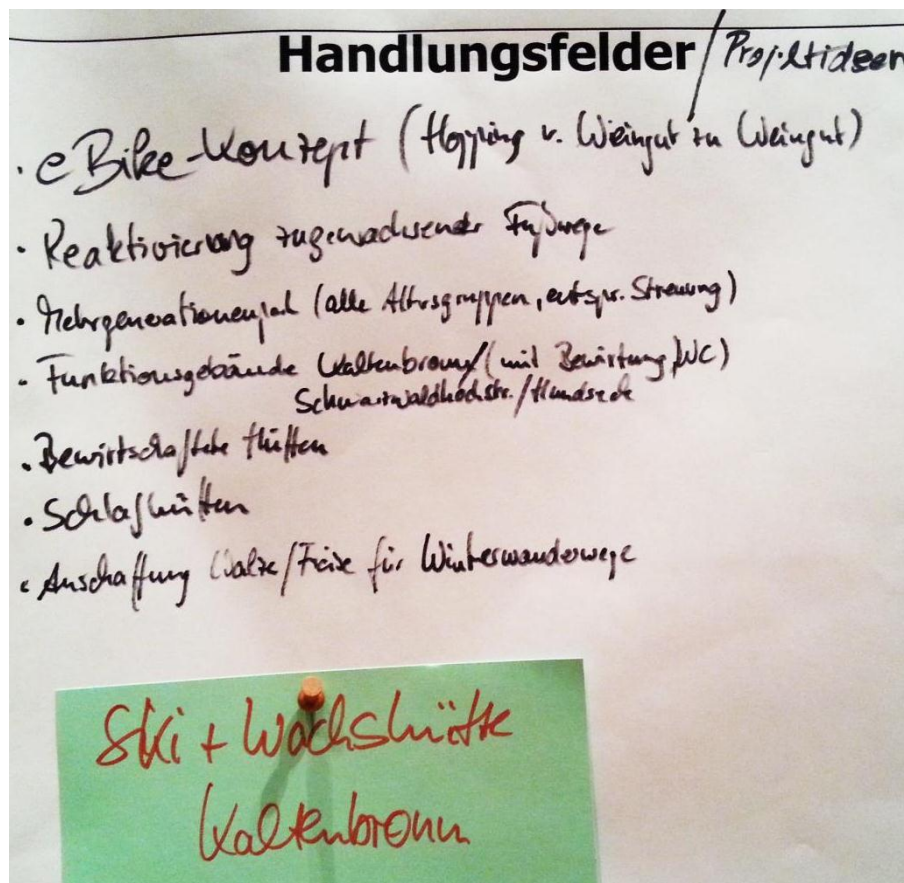 Handlungsfelder / Projektideen
· eBike-Konzept (Hopping v. Weingut zu Weingut)
· Reaktivierung zugewachsener Fußwege
· Mehrgenerationenpfad (alle Altersgruppen, entspr. Streuung)
· Funktionsgebäude Kaltenbronn/ (mit Bewirtung, WC)
Schwarzwaldhochstr./Hundseck
· Bewirtschaftete Hütten
· Schlafhütten
· Anschaffung Walze/Fräse für Winterwanderwege
Ski + Wachshütte
Kaltenbronn